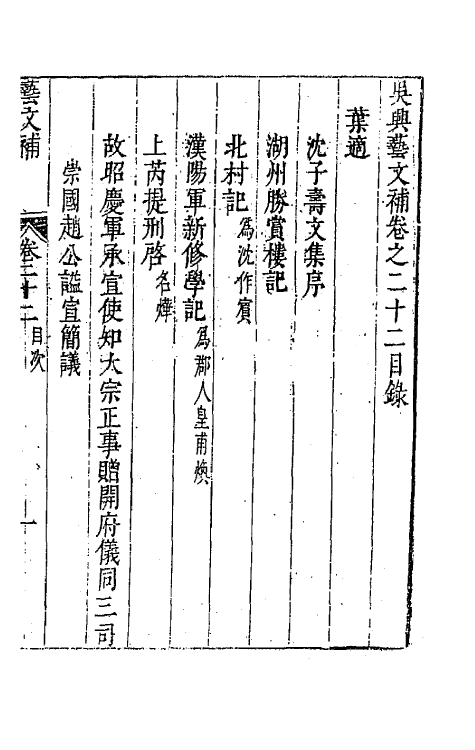 吳興藝文補卷之二十二目錄
葉適
沈子壽文集序
湖州勝賞樓記
北村記為沈作賓
漢陽軍新修學記為郡人皇甫煥
上芮提刑啓名燁
故昭慶軍承宣使知大宗正事贈開府儀同三司
崇國趙公諡宣簡議
藝文補 卷二十二目次 一